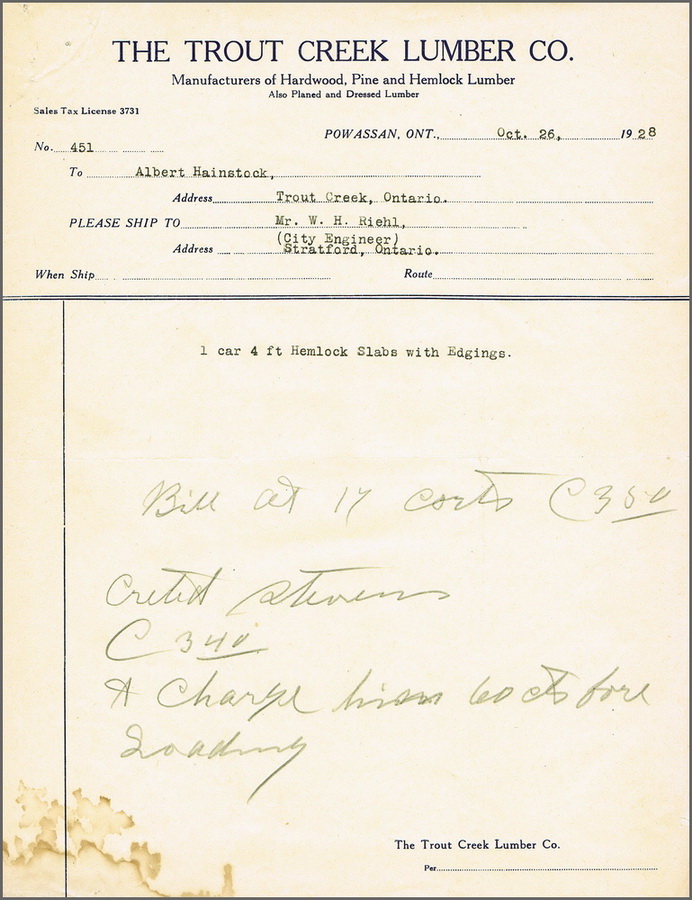 THE TROUT CREEK LUMBER CO.
Manufacturers of Hardwood, Pine and Hemlock Lumber
Also Planed and Dressed Lumber
Sales Tax License 3731
POWASSAN, ONT., Oct. 26, 1928
No. 451
To Albert Hainstock,
Address Trout Creek, Ontario.
PLEASE SHIP TO Mr. W. H. Riehl,
(City Engineer)
Address Stratford, Ontario.
When Ship Route
1 car 4 ft Hemlock Slabs with Edgings.
Bill at 17 cords C 3 50
Stevens
C 3 40
& Charge him 60 cts fore
Loading
The Trout Creek Lumber Co.
Per